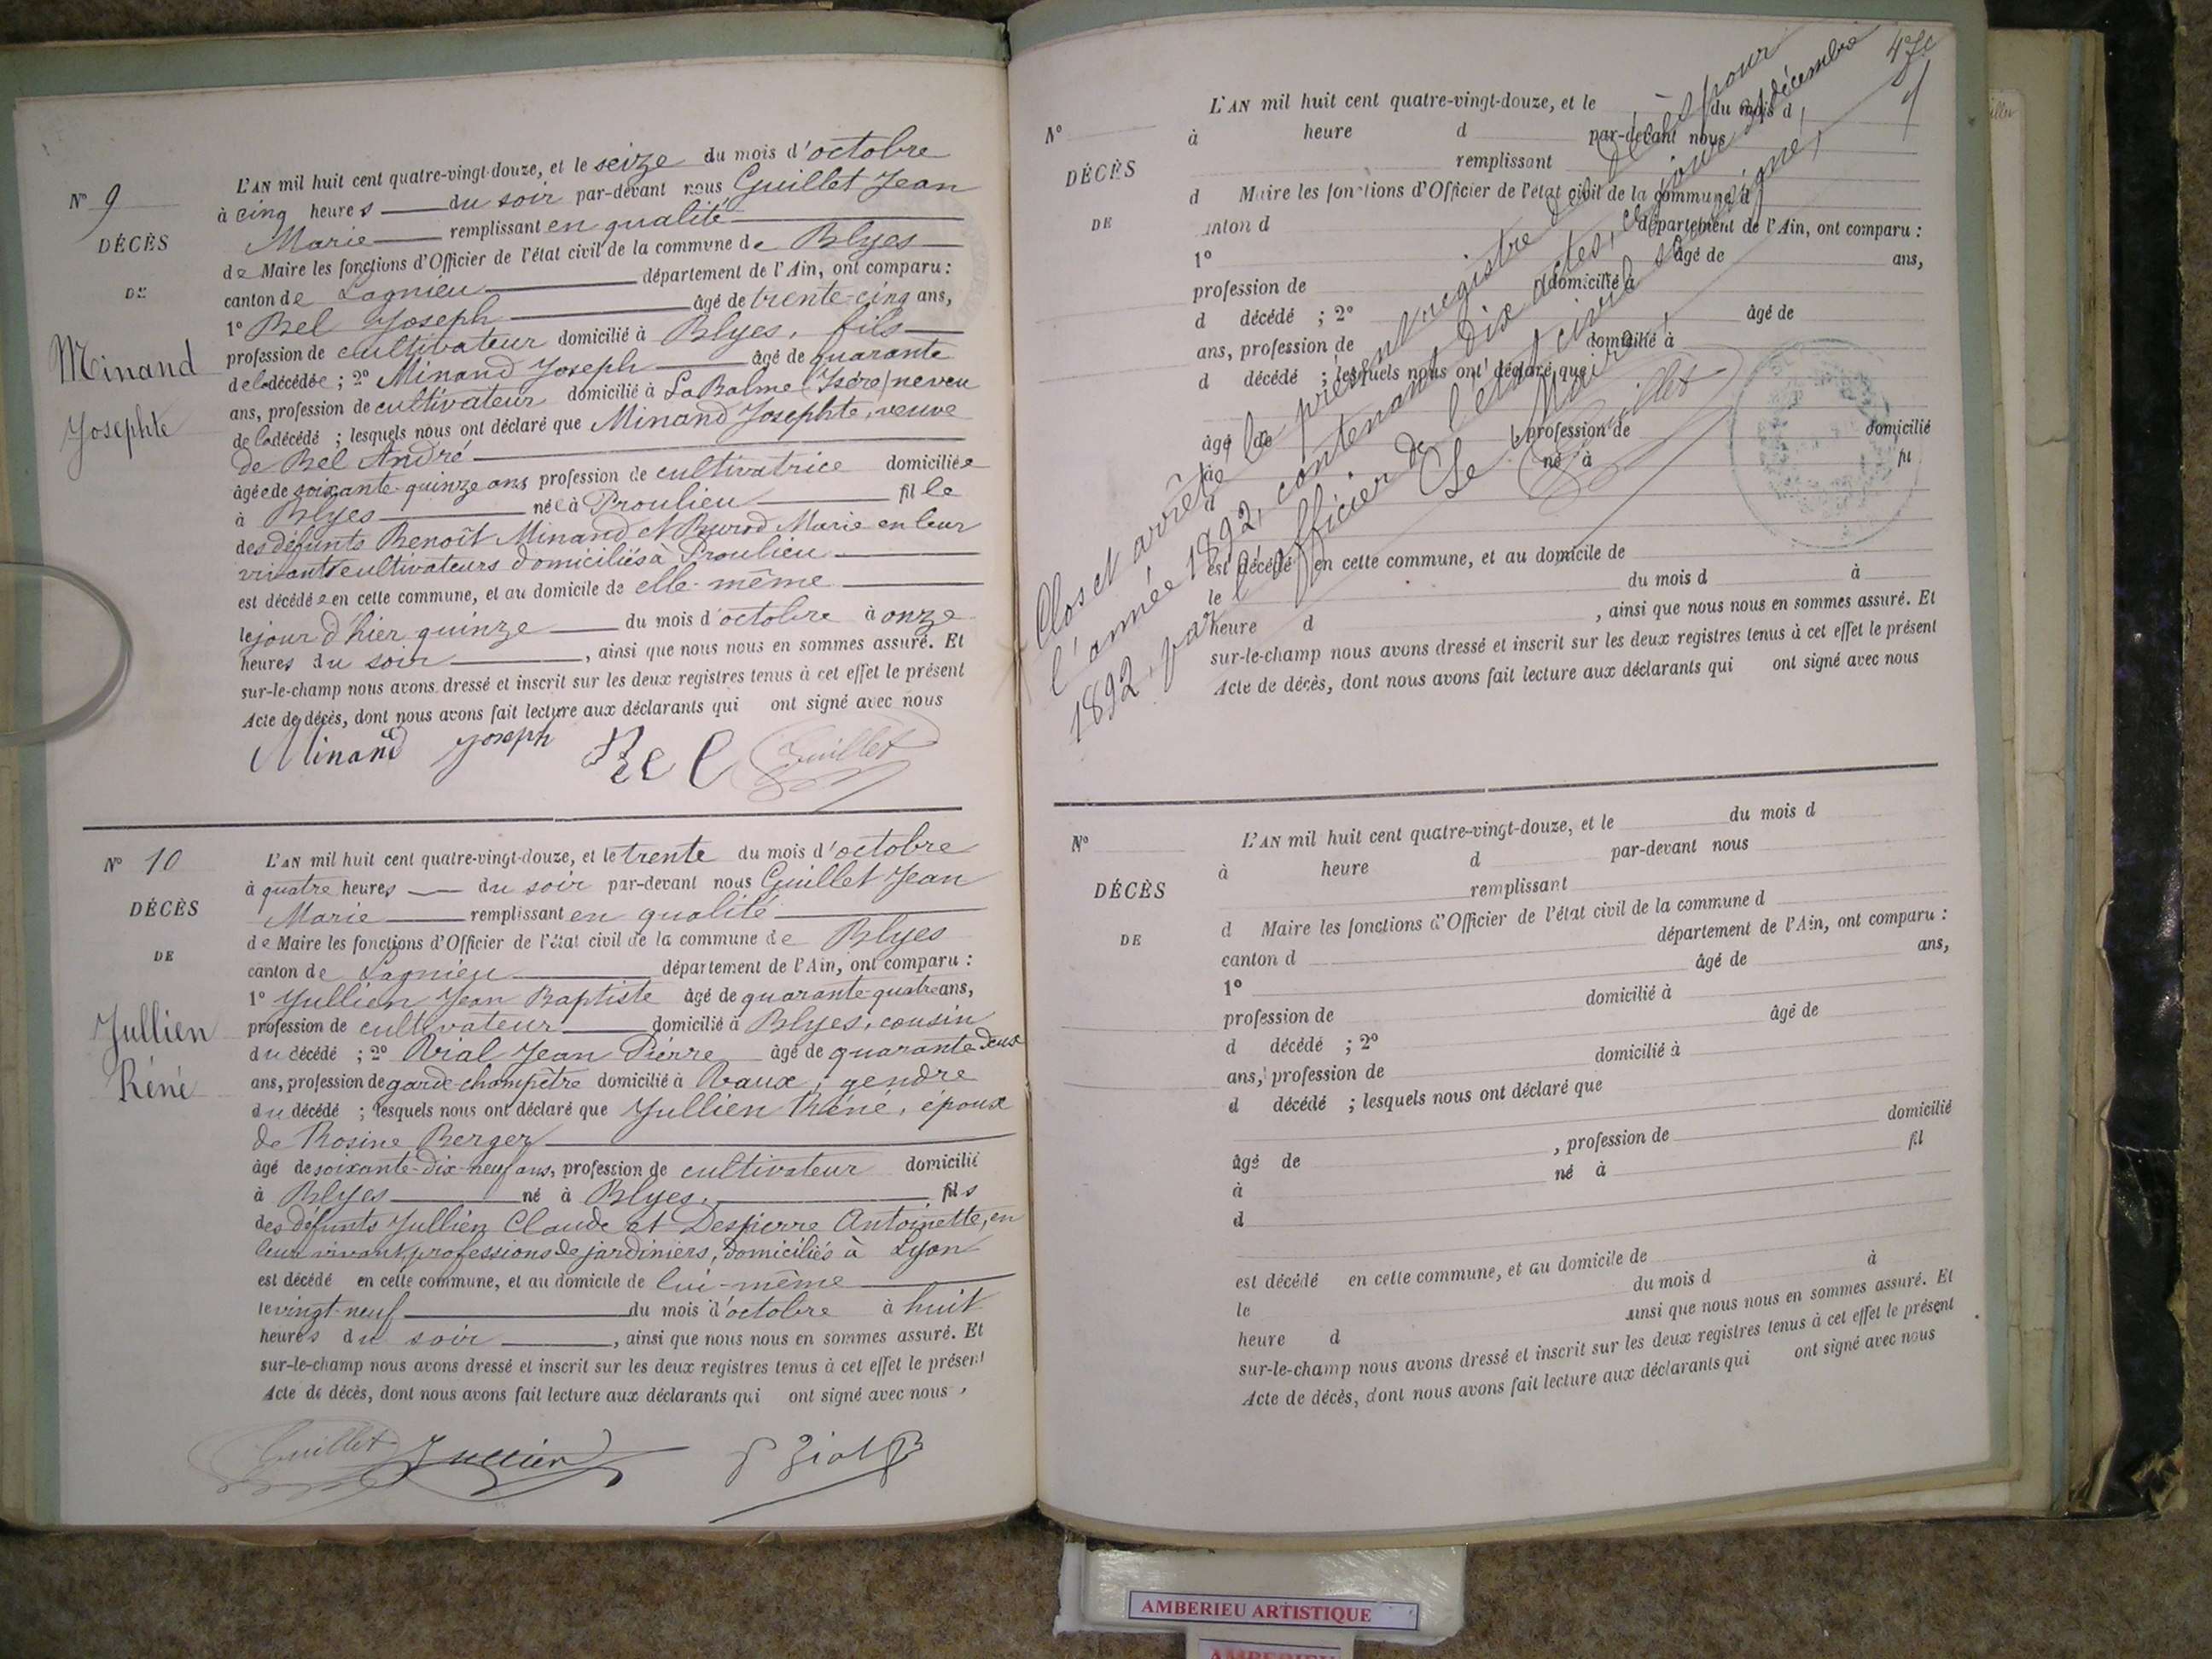 N° 9
DÉCÈS
DE
Minand
Josephte
L'AN mil huit cent quatre-vingt-douze, et le seize du mois d'octobre
à cinq heures du soir par-devant nous Guillet Jean
Marie remplissant en qualité
de Maire les fonctions d'Officier de l'état civil de la commune de Blyes
canton de Lagnieu département de l'Ain, ont comparu :
1° Bel Joseph âgé de trente-cinq ans,
profession de cultivateur domicilié à Blyes, fils
de la décédée ; 2° Minand Joseph âgé de quarante
ans, profession de cultivateur domicilié à La Balme (Isère) neveu
de la décédé ; lesquels nous ont déclaré que Minand Josephte, veuve
de Bel André
âgée de soixante-quinze ans profession de cultivatrice domiciliée
à Blyes née à Proulieu fille
des défunts Benoît Minand et Marie en leur
vivant cultivateurs domiciliés à Proulieu
est décédée en cette commune, et au domicile de elle-même
le jour d'hier quinze du mois d'octobre à onze
heures du soir, ainsi que nous nous en sommes assuré. Et
sur-le-champ nous avons dressé et inscrit sur les deux registres tenus à cet effet le présent
Acte de décès, dont nous avons fait lecture aux déclarants qui ont signé avec nous
Minand Joseph Bel Guillet
N° 10
DÉCÈS
DE
Jullien
Réné
L'AN mil huit cent quatre-vingt-douze, et le trente du mois d'octobre
à quatre heures du soir par-devant nous Guillet Jean
Marie remplissant en qualité
de Maire les fonctions d'Officier de l'état civil de la commune de Blyes
canton de Lagnieu département de l'Ain, ont comparu :
1° Jullien Jean Baptiste âgé de quarante-quatre ans,
profession de cultivateur domicilié à Blyes, cousin
du décédé ; 2° Jean Pierre âgé de quarante-deux
ans, profession de garde-champêtre domicilié à Vaux, gendre
du décédé ; lesquels nous ont déclaré que Jullien Réné, époux
de Rosine Berger
âgé de soixante-dix-neuf ans, profession de cultivateur domicilié
à Blyes né à Blyes, fils
des défunts Jullien Claude et Despierre Antoinette, en
leur vivant professions de jardiniers, domiciliés à Lyon
est décédé en cette commune, et au domicile de lui-même
le vingt-neuf du mois d'octobre à huit
heures du soir, ainsi que nous nous en sommes assuré. Et
sur-le-champ nous avons dressé et inscrit sur les deux registres tenus à cet effet le présent
Acte de décès, dont nous avons fait lecture aux déclarants qui ont signé avec nous,
Guillet Jullien
N°
DÉCÈS
DE
L'AN mil huit cent quatre-vingt-douze, et le du mois d
à heure d par-devant nous
remplissant
d Maire les fonctions d'Officier de l'état civil de la commune d
canton d département de l'Ain, ont comparu :
1° âgé de ans,
profession de domicilié à
d décédé ; 2° âgé de
ans, profession de domicilié à
d décédé ; lesquels nous ont déclaré que
âgé de , profession de domicilié
à né à fil
d
est décédé en cette commune, et au domicile de
le du mois d à
heure d , ainsi que nous nous en sommes assuré. Et
sur-le-champ nous avons dressé et inscrit sur les deux registres tenus à cet effet le présent
Acte de décès, dont nous avons fait lecture aux déclarants qui ont signé avec nous
Clos et arrêté le présent registre de décès pour
l'année 1892, contenant dix actes, ce jour 31 décembre
1892, par l'officier de l'état civil soussigné,
Le Maire,
Guillet
N°
DÉCÈS
DE
L'AN mil huit cent quatre-vingt-douze, et le du mois d
à heure d par-devant nous
remplissant
d Maire les fonctions d'Officier de l'état civil de la commune d
canton d département de l'Ain, ont comparu :
1° âgé de ans,
profession de domicilié à
d décédé ; 2° âgé de
ans, profession de domicilié à
d décédé ; lesquels nous ont déclaré que
âgé de , profession de domicilié
à né à fil
d
est décédé en cette commune, et au domicile de
le du mois d à
heure d ainsi que nous nous en sommes assuré. Et
sur-le-champ nous avons dressé et inscrit sur les deux registres tenus à cet effet le présent
Acte de décès, dont nous avons fait lecture aux déclarants qui ont signé avec nous
AMBERIEU ARTISTIQUE
AMBERIEU